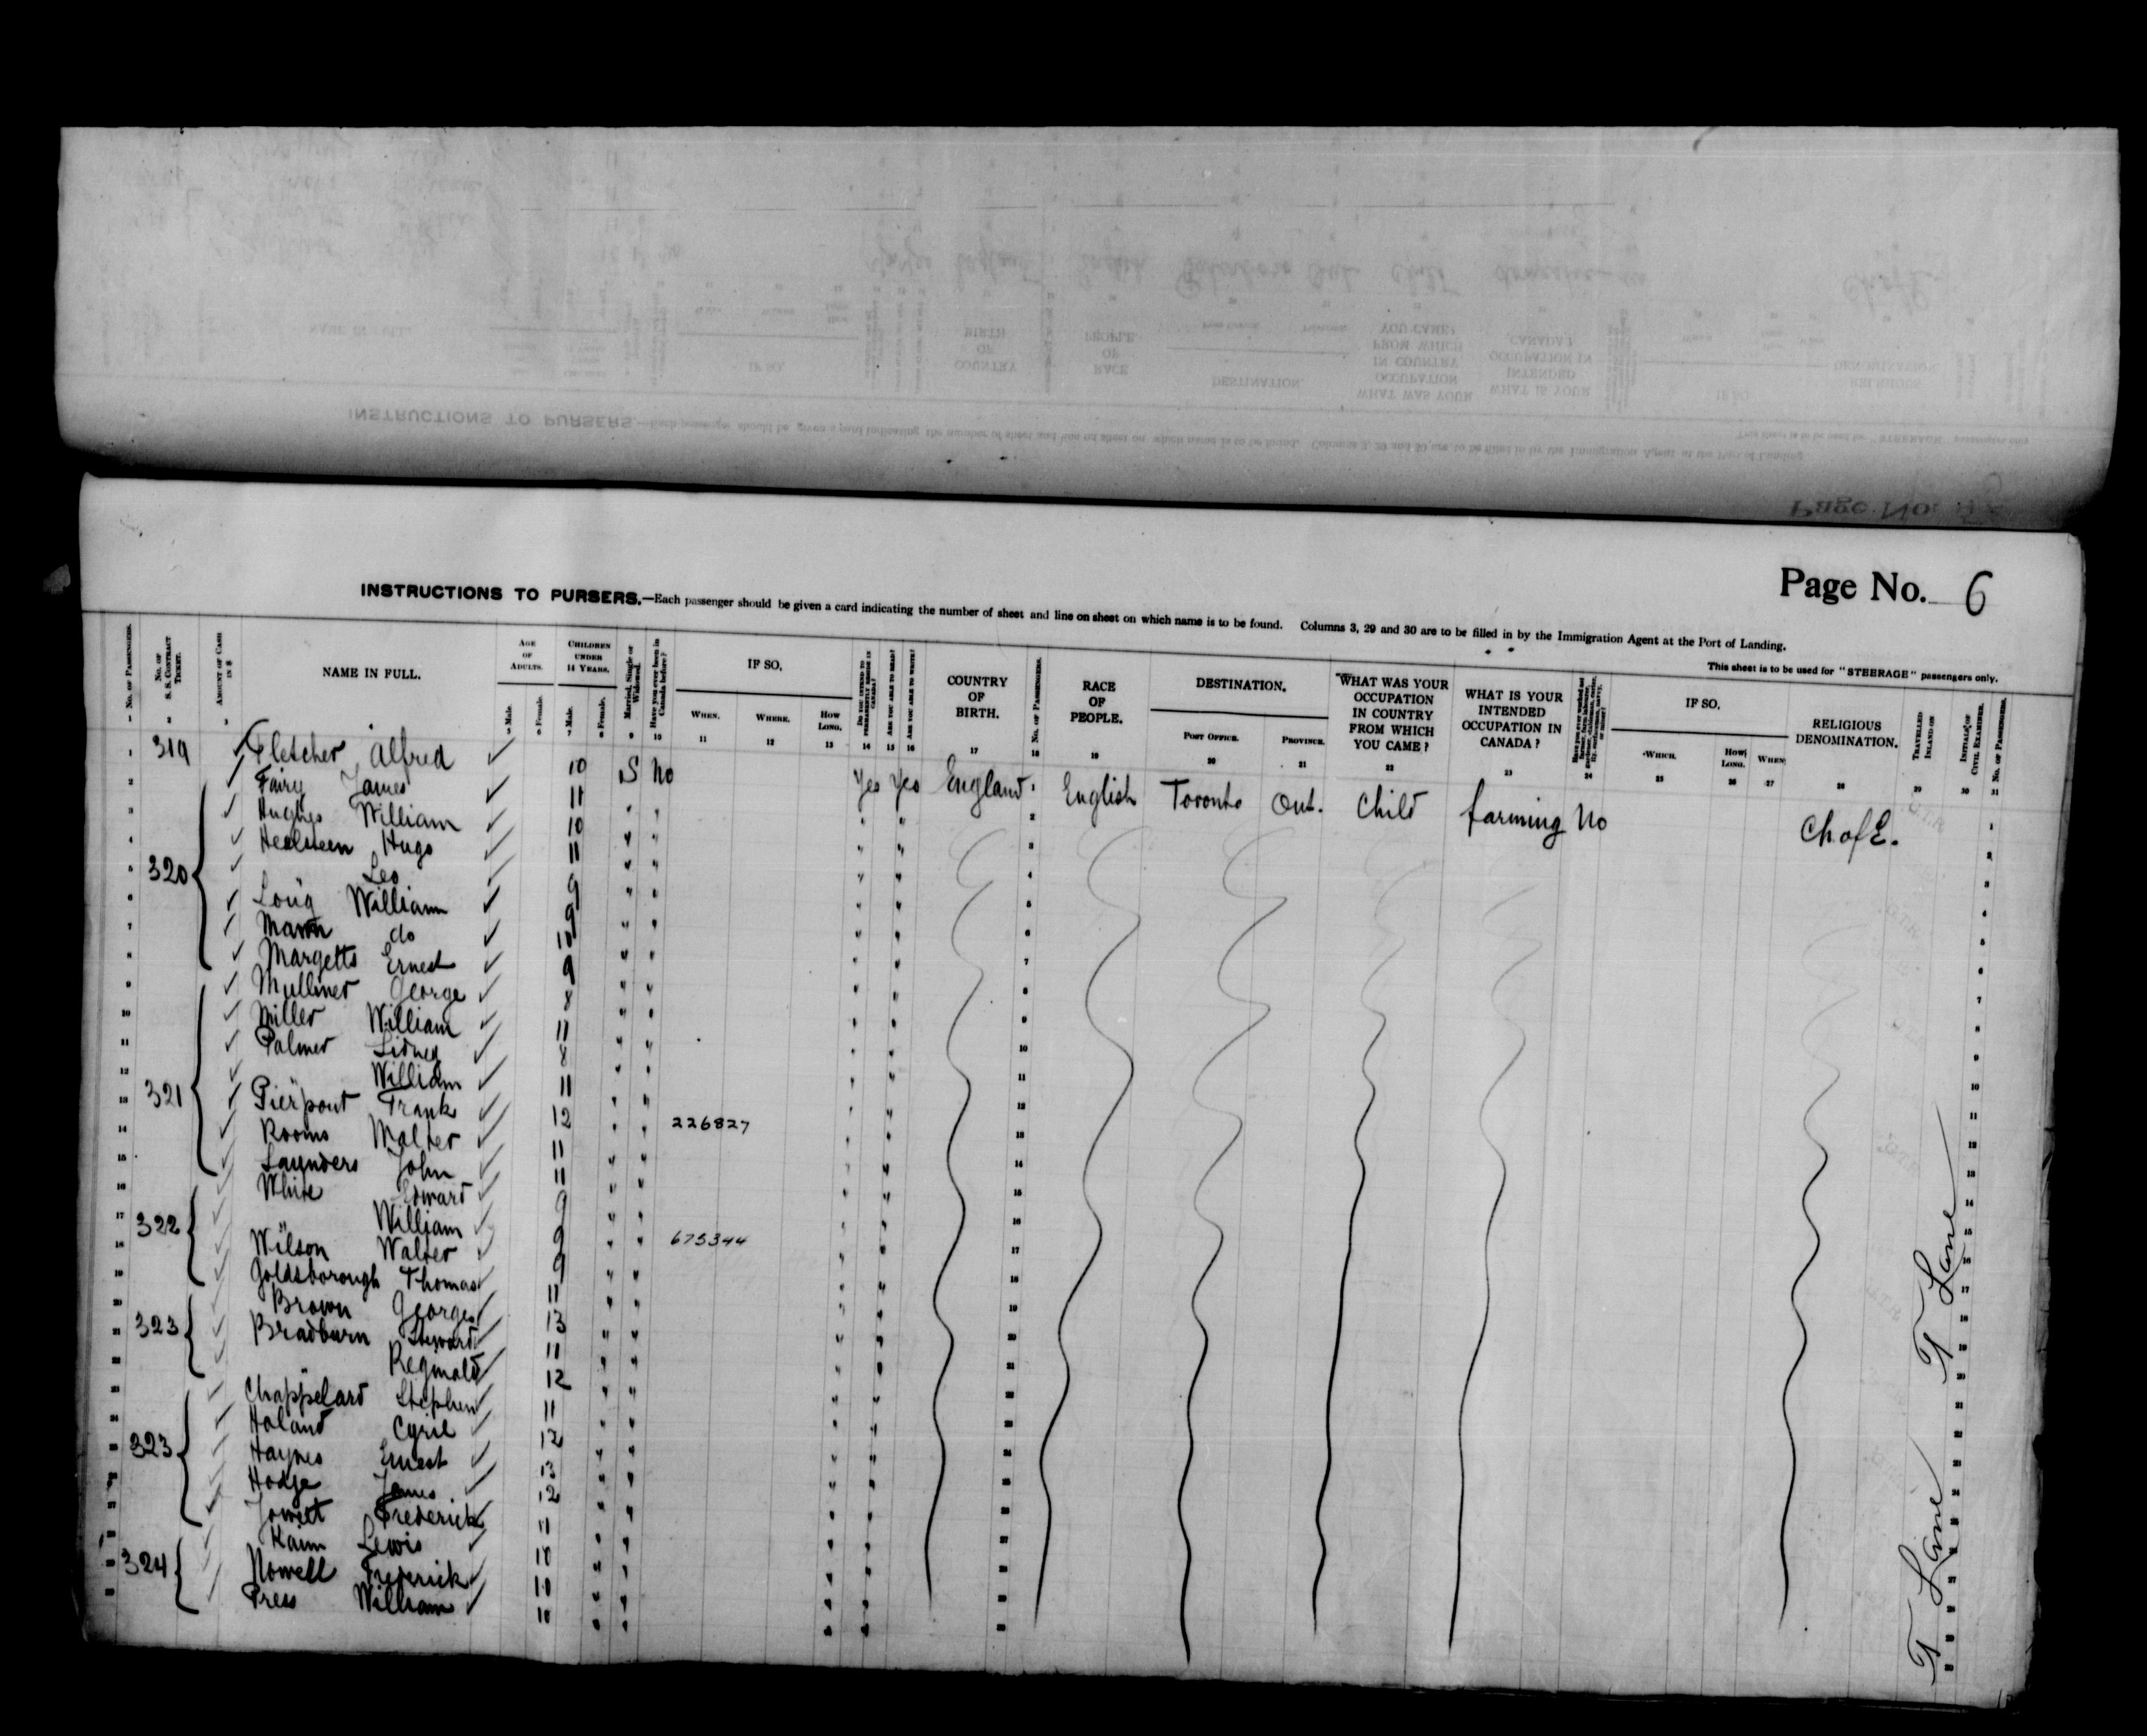 Page No. 6
INSTRUCTIONS TO PURSERS.—Each passenger should be given a card indicating the number of sheet and line on sheet on which name is to be found. Columns 3, 29 and 30 are to be filled in by the Immigration Agent at the Port of Landing.
This sheet is to be used for "STEERAGE" passengers only.
No. of Passengers. No. of S. S. Contract Ticket. Amount of Cash in $ NAME IN FULL. Age of Adults. Male. Female. Children under 14 Years. Male. Female. Married, Single or Widowed. Have you ever been in Canada before? IF SO, When. Where. How Long. Do you intend to permanently reside in Canada? Are you able to read? Are you able to write? COUNTRY OF BIRTH. No. of Passengers. RACE OF PEOPLE. DESTINATION. Post Office. Province. WHAT WAS YOUR OCCUPATION IN COUNTRY FROM WHICH YOU CAME? WHAT IS YOUR INTENDED OCCUPATION IN CANADA? IF SO, Which. How Long. When. RELIGIOUS DENOMINATION. Travelled Inland on Initials of Civil Examiner. No. of Passengers.
1 319 Fletcher Alfred 10 S No Yes Yes England 1 English Toronto Ont. Child farming No Ch of E. 1
2 Fairy James 11 " " " " 2
3 Hughes William 10 " " " " 3
4 Hugo 11 " " " " 4
5 320 " Leo 9 " " " " 5
6 Long William 9 " " " " 6
7 Mann do 10 " " " " 7
8 Margetts Ernest 9 " " " " 8
9 Mulliner George 8 " " " " 9
10 Miller William 11 " " " " 10
11 Palmer Sidney 8 " " " " 11
12 " William 11 " " " " 12
13 321 Pierpont Frank 12 " " 226827 " " 13
14 Rooms Walter 11 " " " " 14
15 Saunders John 11 " " " " 15
16 White Edward 9 " " " " 16
17 322 " William 9 " " 675344 " " 17
18 Wilson Walter 9 " " " " 18
19 Goldsborough Thomas 11 " " " " 19
20 Brown George 13 " " " " 20
21 323 Bradburn Steward 11 " " " " 21
22 " Reginald 12 " " " " 22
23 Chappelard Stephen 11 " " " " 23
24 Holand Cyril 12 " " " " 24
25 323 Haynes Ernest 13 " " " " 25
26 Hodge James 12 " " " " 26
27 Jowett Frederick 11 " " " " 27
28 Kann Lewis 10 " " " " 28
29 324 Nowell Frederick 10 " " " " 29
30 Press William 10 " " " " 30
T Lane
T Lane